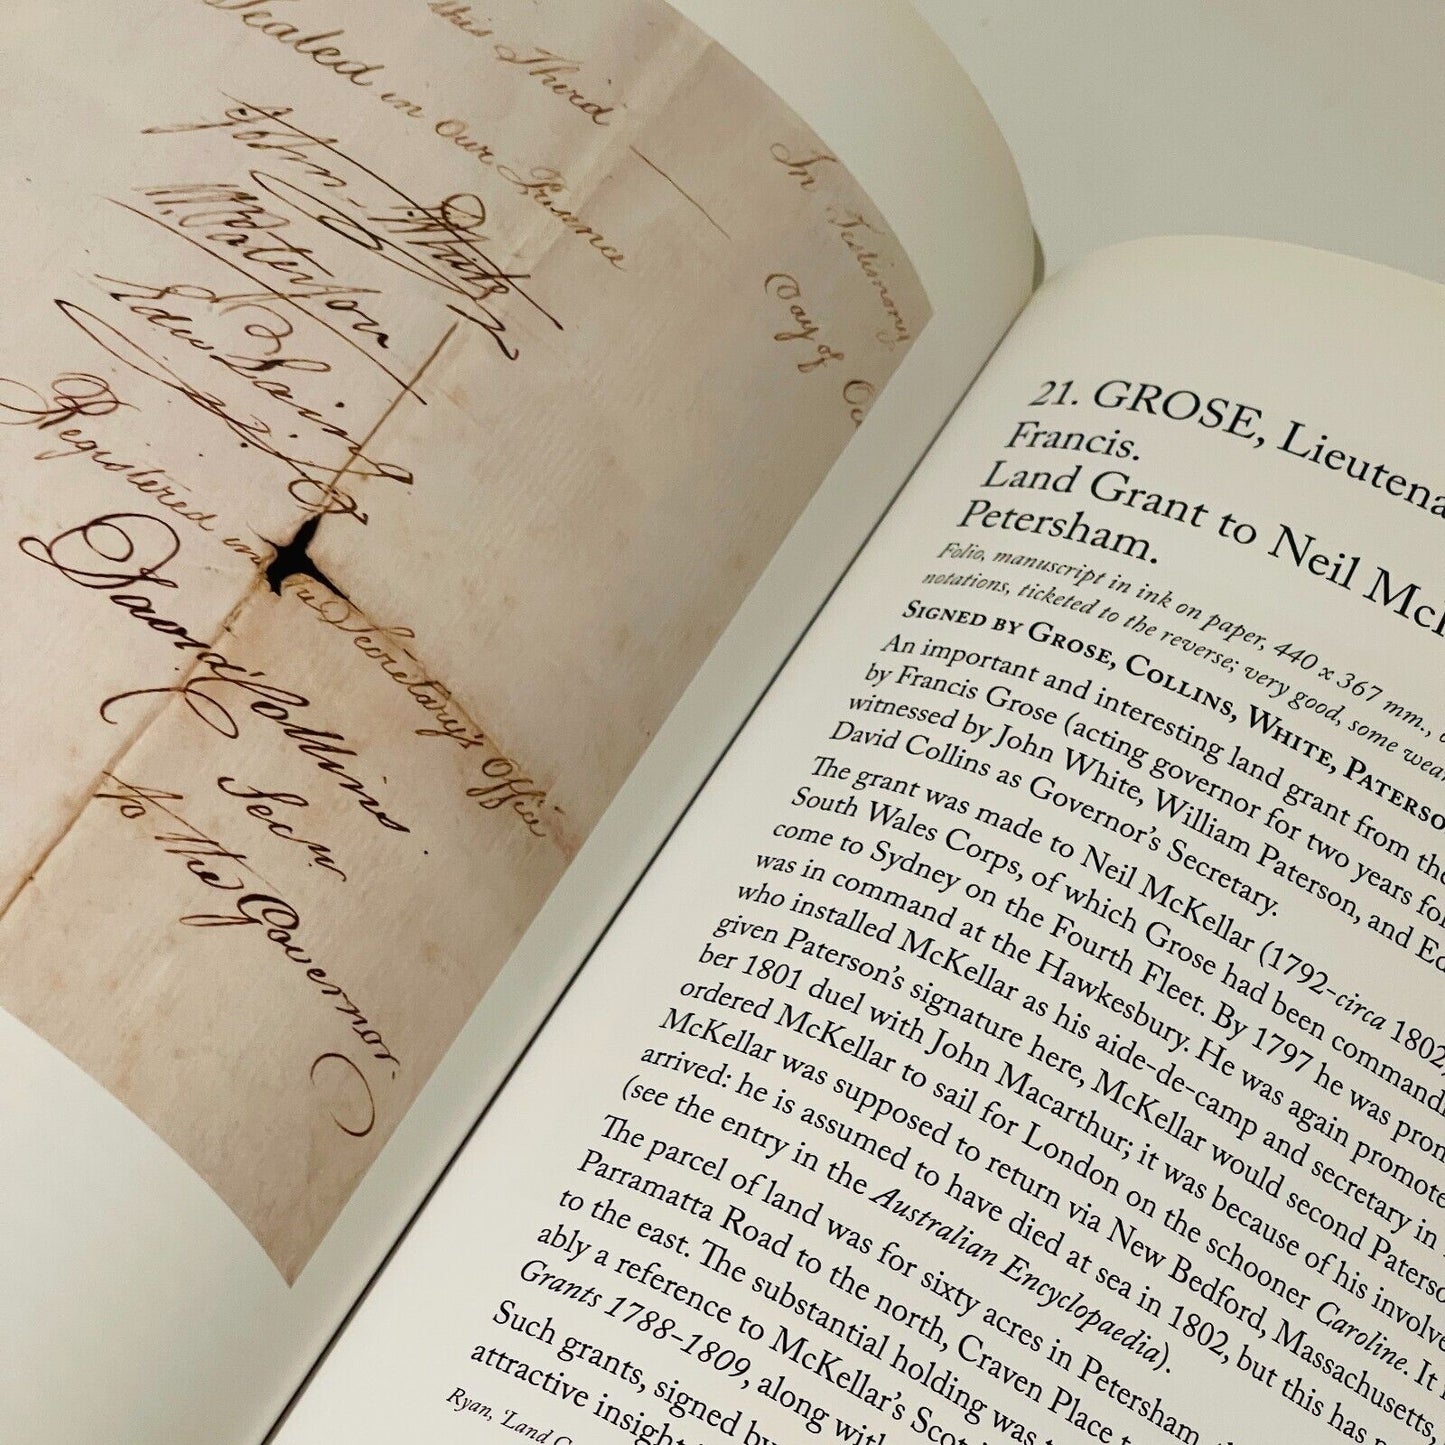 this Third
Sealed in our Presence
John White
W. Paterson
Edw Laing
Registered in the Secretary's Office
David Collins
Secry
to The Governor
In Testimony
Day of
21. GROSE, Lieutena
Francis.
Land Grant to Neil McK
Petersham.
Folio, manuscript in ink on paper, 440 x 367 mm.,
notations, ticketed to the reverse; very good, some wear
SIGNED BY GROSE, COLLINS, WHITE, PATERSO
An important and interesting land grant from the
by Francis Grose (acting governor for two years fo
witnessed by John White, William Paterson, and Ed
David Collins as Governor's Secretary.
The grant was made to Neil McKellar (1792-circa 1802
South Wales Corps, of which Grose had been commandi
come to Sydney on the Fourth Fleet. By 1797 he was prom
was in command at the Hawkesbury. He was again promote
who installed McKellar as his aide-de-camp and secretary in
given Paterson's signature here, McKellar would second Paterso
ber 1801 duel with John Macarthur; it was because of his involve
ordered McKellar to sail for London on the schooner Caroline. It
McKellar was supposed to return via New Bedford, Massachusetts,
arrived: he is assumed to have died at sea in 1802, but this has
(see the entry in the Australian Encyclopaedia).
The parcel of land was for sixty acres in Petersham,
Parramatta Road to the north, Craven Place
to the east. The substantial holding was
ably a reference to McKellar's
Grants 1788-1809, along with
Such grants, signed by
attractive insight
Ryan, 'Land